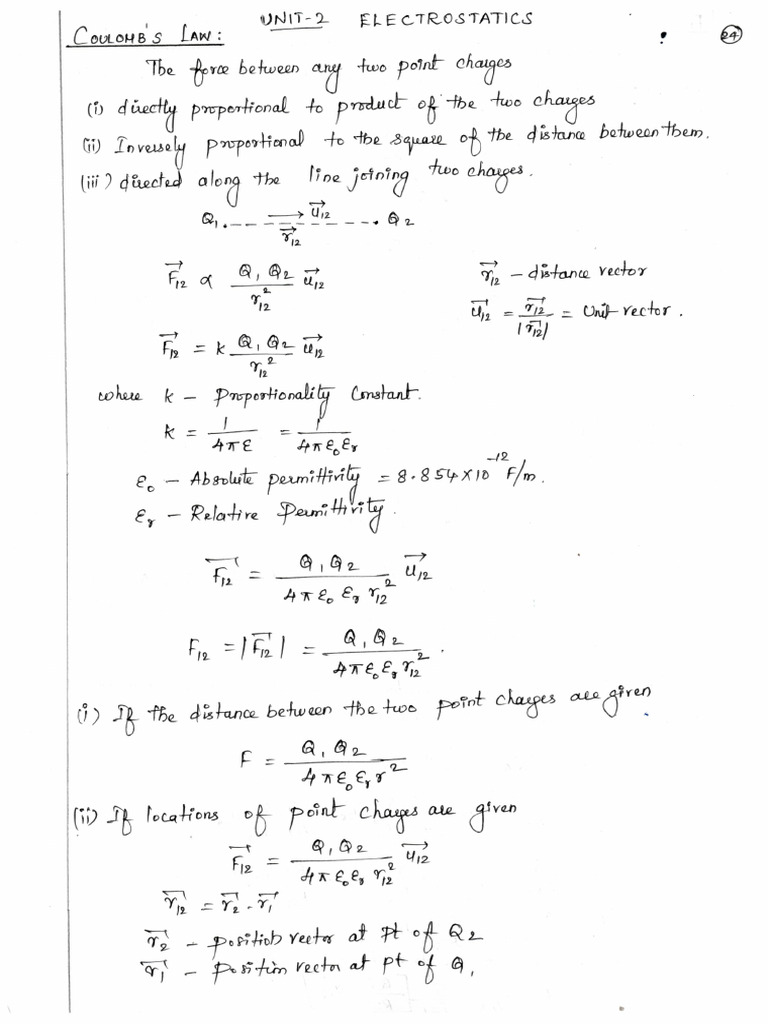 UNIT-2 ELECTROSTATICS
24
COULOMB'S LAW:
The force between any two point charges
(i) directly proportional to product of the two charges
(ii) Inversely proportional to the square of the distance between them.
(iii) directed along the line joining two charges.
Q₁ . - - - →u₁₂ - - - . Q₂
→r₁₂
→F₁₂ ∝ Q₁ Q₂ / r₁₂² →u₁₂
→r₁₂ - distance vector
→u₁₂ = →r₁₂ / |→r₁₂| = Unit vector.
→F₁₂ = k Q₁ Q₂ / r₁₂² →u₁₂
where k - Proportionality Constant.
k = 1 / 4πε = 1 / 4πε₀εᵣ
ε₀ - Absolute permittivity = 8.854×10⁻¹² F/m.
εᵣ - Relative Permittivity.
→F₁₂ = Q₁ Q₂ / 4π ε₀ εᵣ r₁₂² →u₁₂
F₁₂ = |→F₁₂| = Q₁ Q₂ / 4πε₀εᵣ r₁₂² .
(i) If the distance between the two point charges are given
F = Q₁ Q₂ / 4πε₀εᵣ r²
(ii) If locations of point charges are given
→F₁₂ = Q₁ Q₂ / 4πε₀εᵣ r₁₂² →u₁₂
→r₁₂ = →r₂ - →r₁
→r₂ - position vector at pt of Q₂
→r₁ - position vector at pt of Q₁